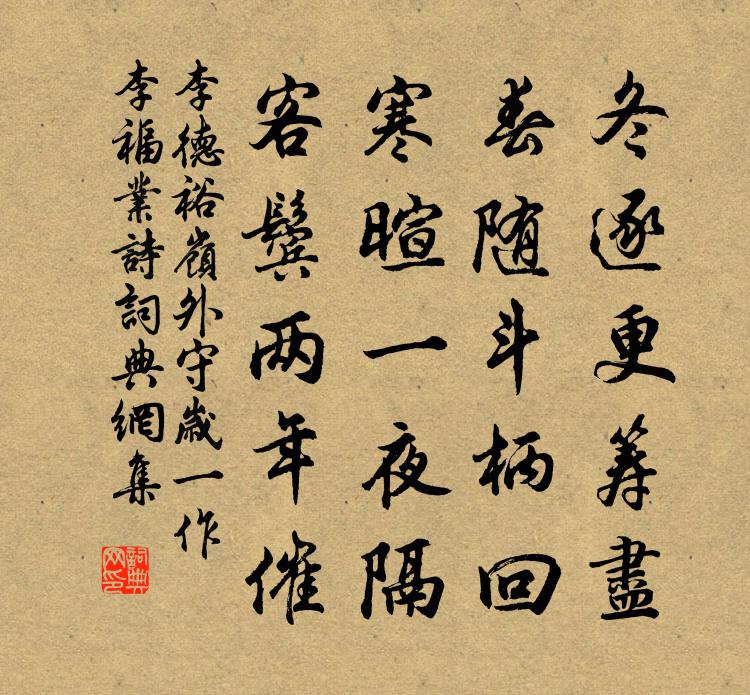 冬逐更筹盡
春随斗柄回
寒暄一夜隔
客鬓两年催
李德裕嶺外守歲一作
李福業詩詞典網集
詞典
网印